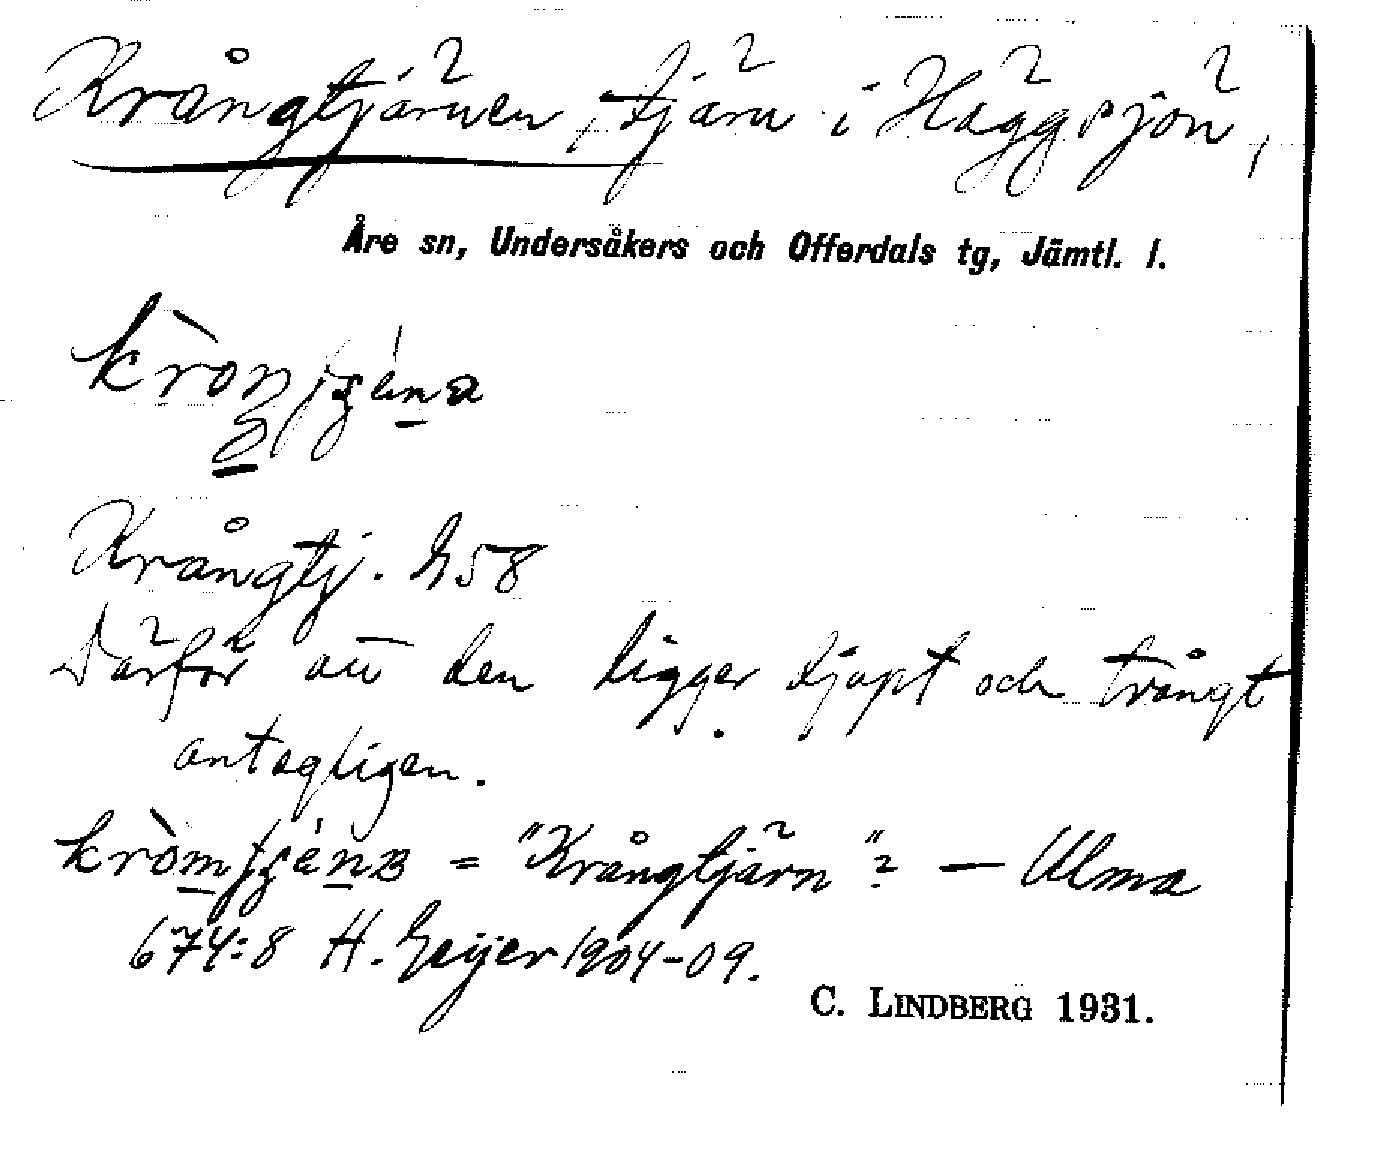 Krångtjärnen, tjärn i Häggsjön,
Åre sn, Undersåkers och Offerdals tg, Jämtl. l.
Krångtj. G58
Därför att den ligger djupt och trångt
antagligen.
= "Krångtjärn"? — Ulma
674:8 H. Geijer 1904-09.
C. LINDBERG 1931.